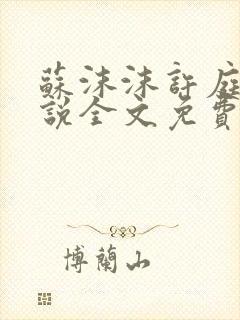 蘇沫沫許庭
說全文免費
博蘭山